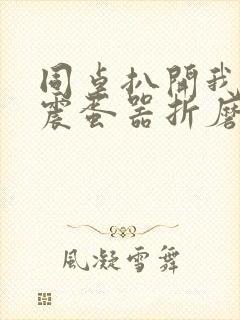 同卓扒開我
震蛋器折磨
風凝雪舞